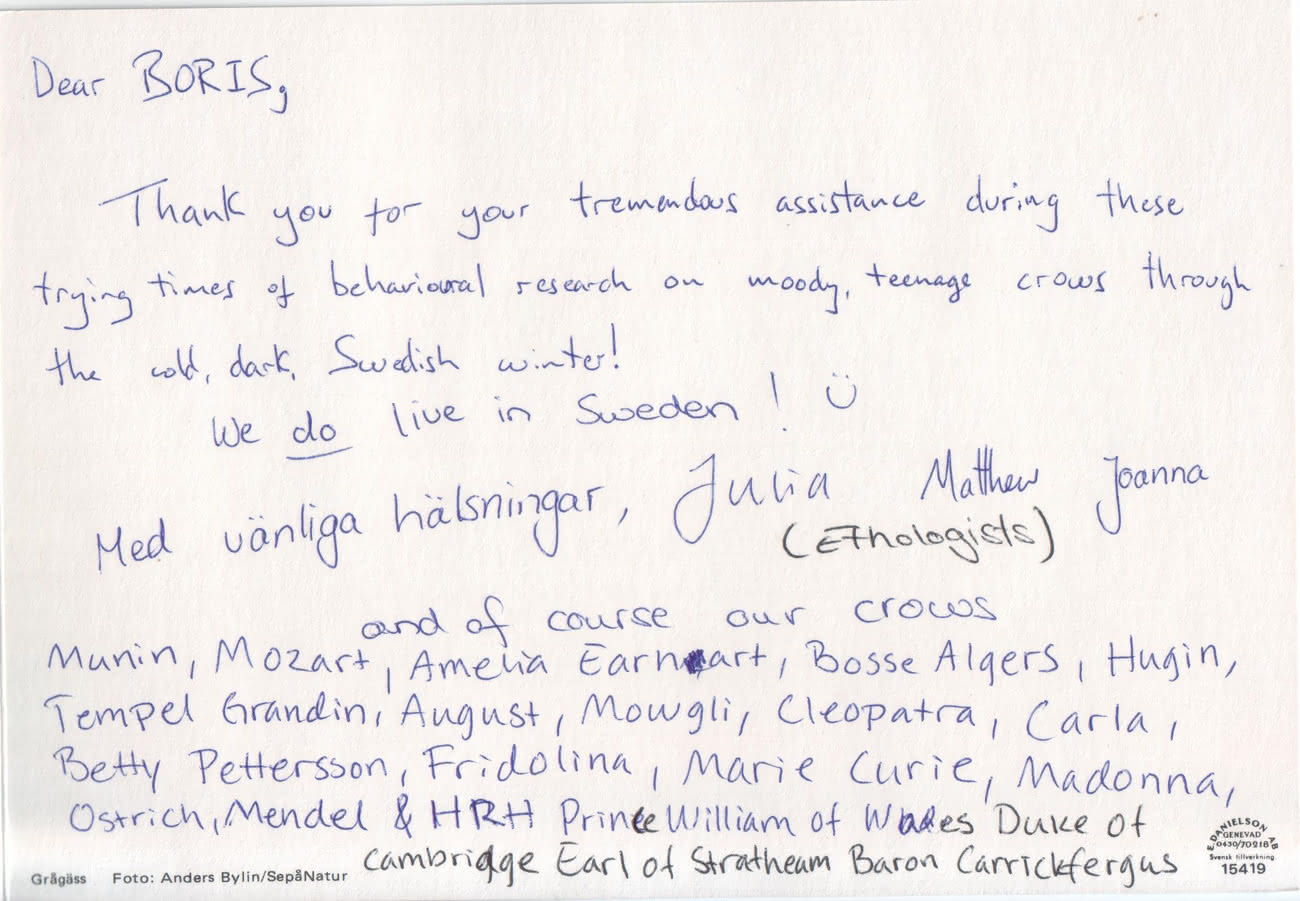 Dear BORIS,
Thank you for your tremendous assistance during these
trying times of behavioural research on moody, teenage crows through
the cold, dark, Swedish winter!
We do live in Sweden! ü
Med vänliga hälsningar, Julia Matthew Joanna
(Ethologists)
and of course our crows
Munin, Mozart, Amelia Earnhart, Bosse Algers, Hugin,
Tempel Grandin, August, Mowgli, Cleopatra, Carla,
Betty Pettersson, Fridolina, Marie Curie, Madonna,
Ostrich, Mendel & HRH Prince William of Wales Duke of
Cambridge Earl of Stratheam Baron Carrickfergus
Grågäss Foto: Anders Bylin/SepåNatur
E. DANIELSON AB
GENEVAD
0430/70218
Svensk tillverkning
15419